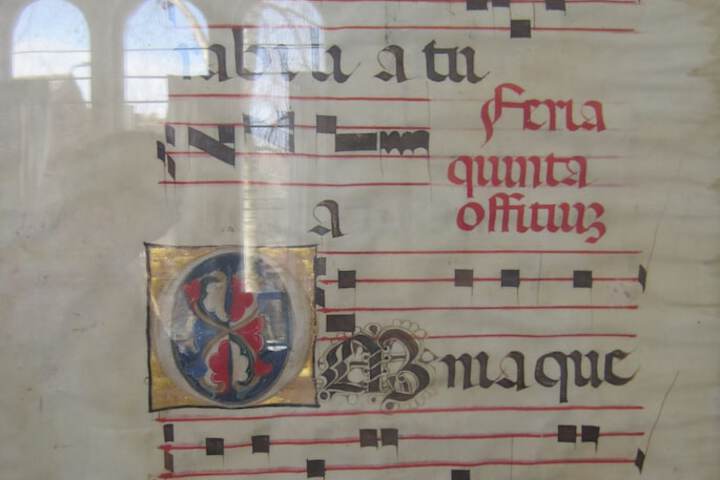 rabili a tu
Feria
quinta
offitiuʒ
a
OMnia que